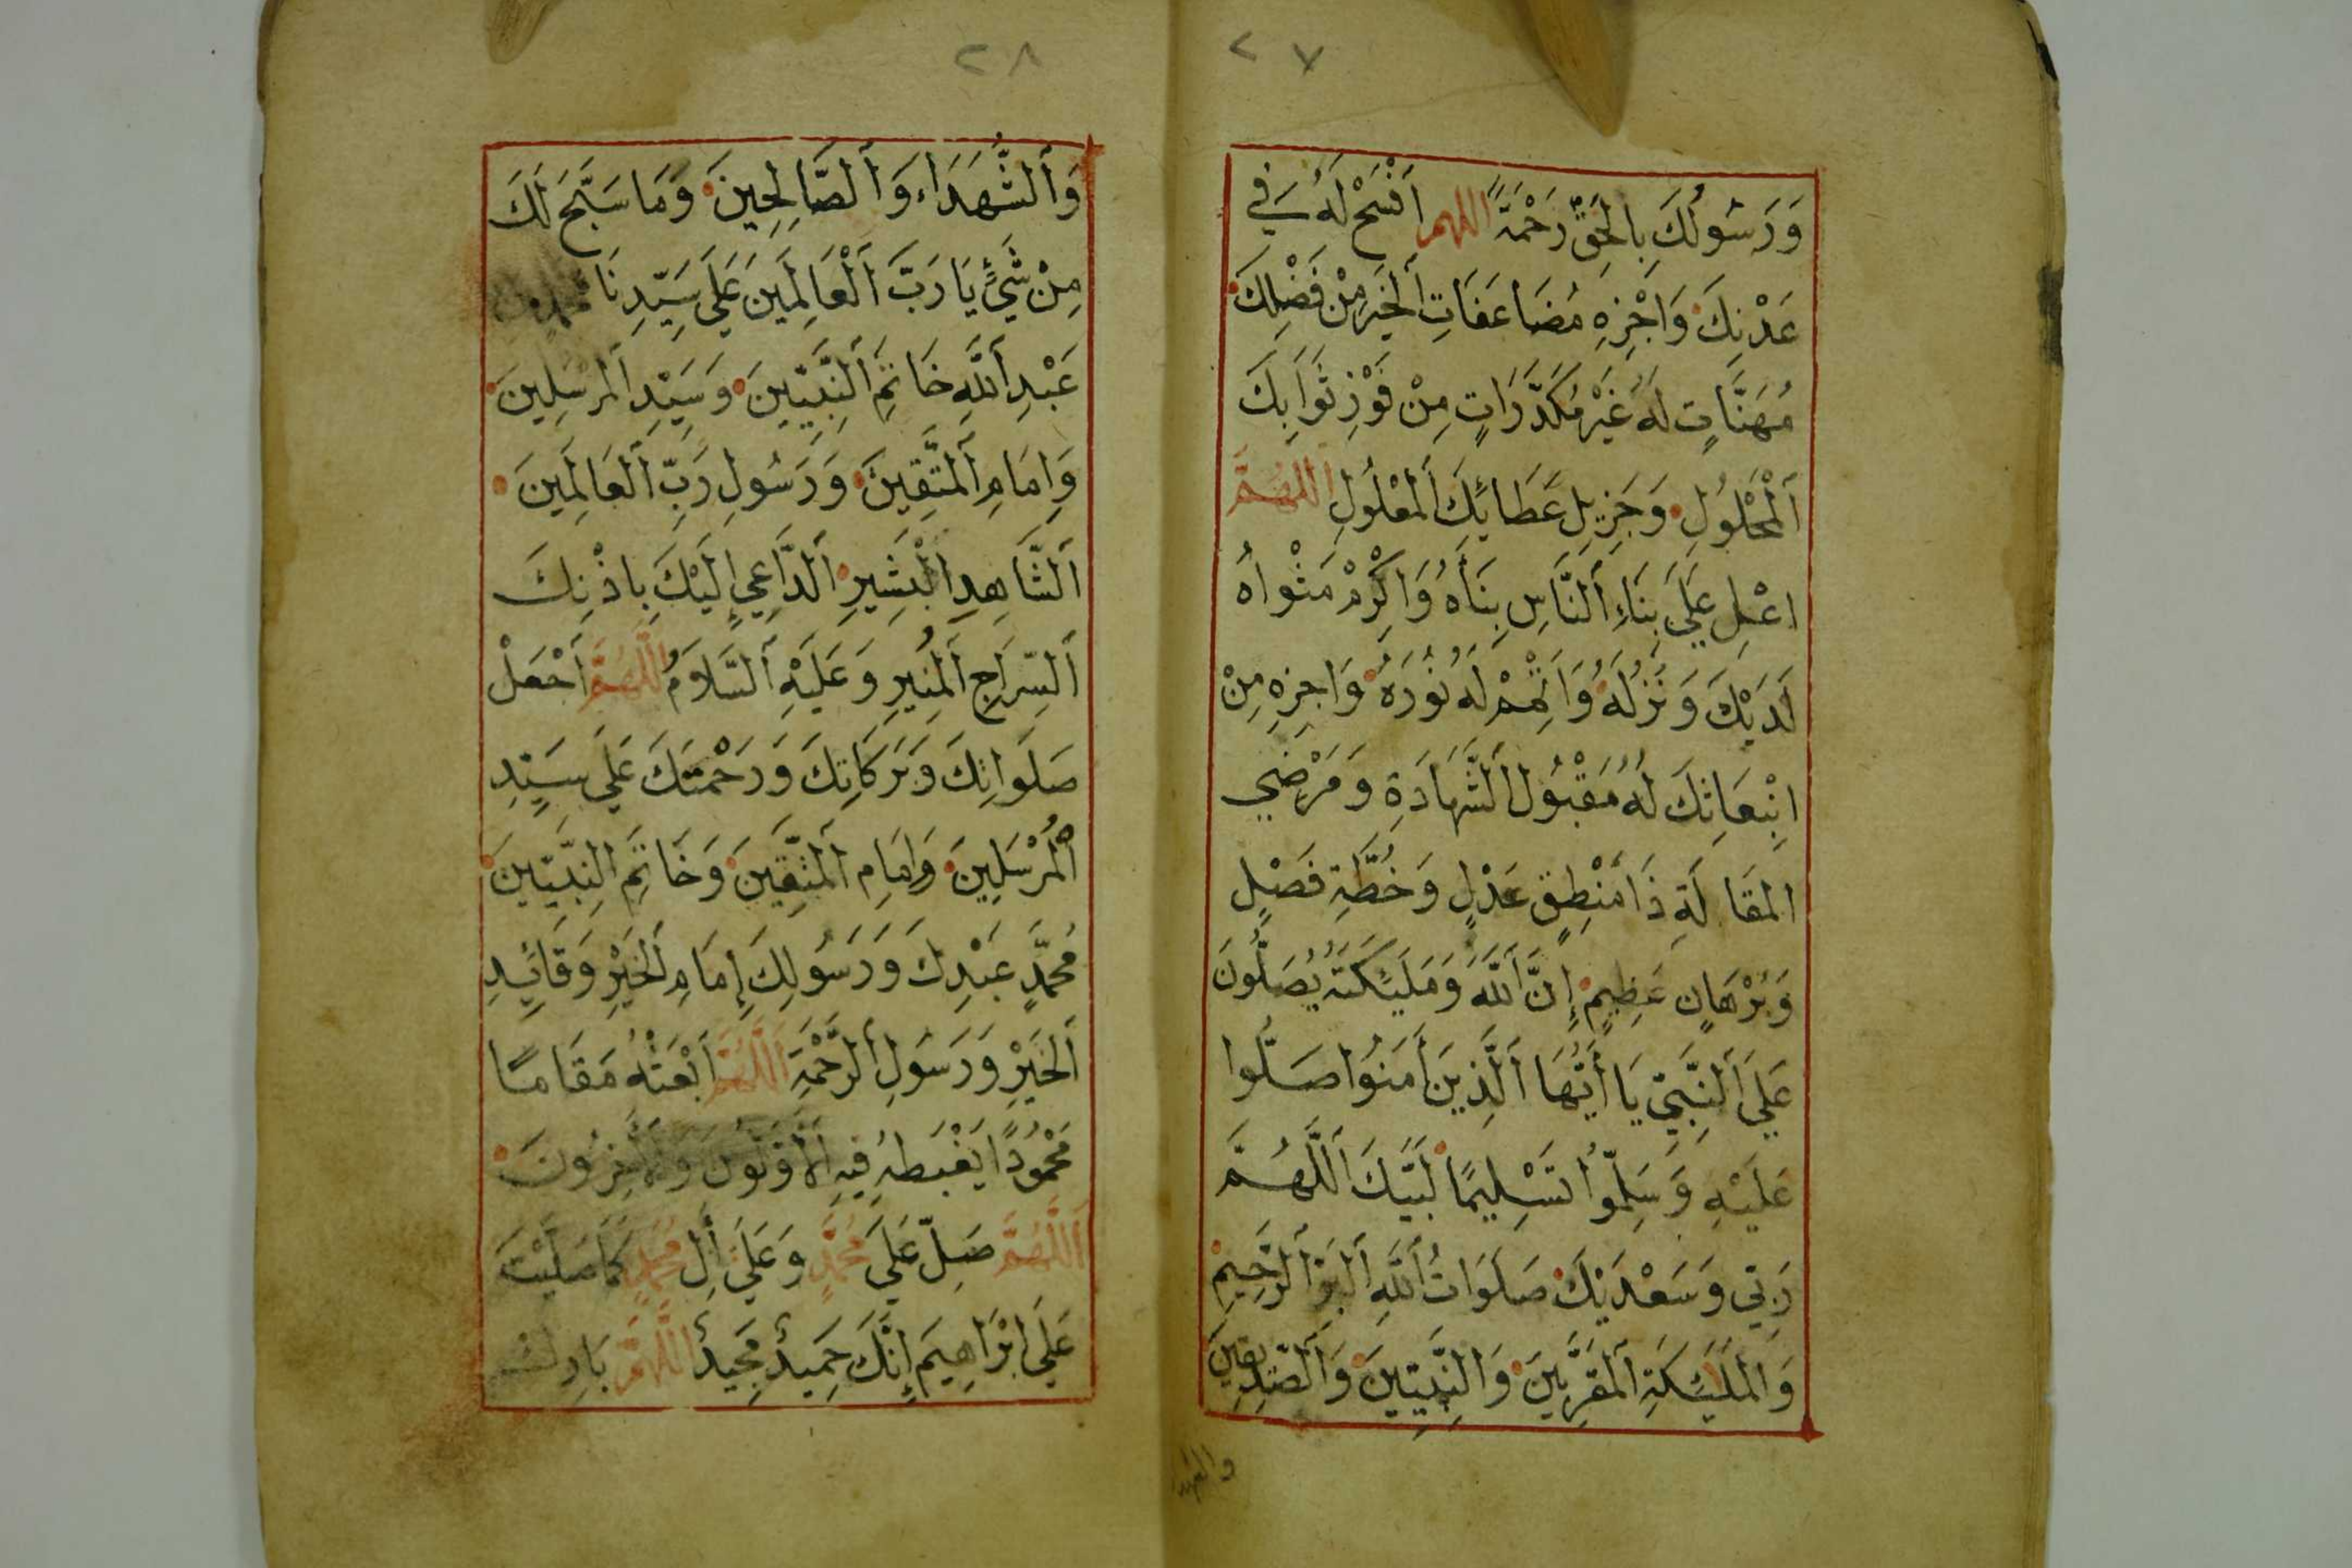 ٢٧
وَرَسُولُكَ بِالْحَقِّ رَحْمَةً اللهم افْسَحْ لَهُ فِي
عَدْنِكَ وَاجْزِهِ مُضَاعَفَاتِ اَلْخَيْرِ مِنْ فَضْلِكَ
مُهَنَّاتٍ لَهُ غَيْرَ مُكَدَّرَاتٍ مِنْ فَوْزِ ثَوَابِكَ
اَلْمَحْلُولِ وَجَزِيلِ عَطَائِكَ اَلْمَعْلُولِ اللهُمَّ
اعْلِ عَلَي بِنَاءِ اَلنَّاسِ بِنَأَهُ وَاَكْرِمْ مَثْواهُ
لَدَيْكَ وَنُزُلَهُ وَاَتْمِمْ لَهُ نُورَهُ وَاجزِهِ مِنْ
ابْتِعَاثِكَ لَهُ مَقْبُولَ اَلشَّهَادَةِ وَمَرْضِي
المَقَالَةِ ذَا مَنْطِقٍ عَدْلٍ وَخُطَّةٍ فَصْلٍ
وَبُرْهَانٍ عَظِيمٍ إِنَّ اَللَّهَ وَمَلَئِكَتَهُ يُصَلُّونَ
عَلَي اَلنَّبِيّ يَا أَيُّهَا اَلَّذِينَ أَمَنُوا صَلُّوا
عَلَيْهِ وَسَلِّمُوا تَسْلِيمًا لَبَّيْكَ اَللَّهُمَّ
رَبِّي وَسَعْدَيْكَ صَلَوَاتُ اَللَّهِ اَلْبَرِّ اَلرَّحِيمِ
وَالْمَلَئِكَةِ اَلْمُقَرَّبِينَ وَالنَّبِيِّينَ وَالصِّدِّيقِينَ
والشهدا
٢٨
وَاَلشُّهَدَاءِ وَاَلصَّالِحِينَ وَمَا سَبَّحَ لَكَ
مِنْ شَيْءٍ يَا رَبَّ اَلْعَالَمِينَ عَلَي سَيِّدِنَا مُحَمَّدِ بْنِ
عَبْدِ اَللَّهِ خَاتِمِ اَلنَّبِيِّينَ وَسَيِّدِ اَلْمُرْسَلِينَ
وَاِمَامِ اَلْمُتَّقِينَ وَرَسُولِ رَبِّ اَلْعَالَمِينَ
اَلشَّاهِدِ الْبَشِيرِ اَلدَّاعِي إِلَيْكَ بِاذْنِكَ
اَلسِّرَاجِ اَلْمُنِيرِ وَعَلَيْهِ اَلسَّلَامُ اللَّهُمَّ اَجْعَلْ
صَلَوَاتِكَ وَبَرَكَاتِكَ وَرَحْمَتَكَ عَلَي سَيِّدِ
اَلْمُرْسَلِينَ وَاِمَامِ اَلْمُتَّقِينَ وَخَاتِمِ النَّبِيِّينَ
مُحَمَّدٍ عَبْدِكَ وَرَسُولِكَ إِمَامِ اَلْخَيْرِ وَقَائِدِ
اَلْخَيْرِ وَرَسُولِ اَلرَّحْمَةِ اَللَّهُمَّ اَبْعَثْهُ مَقَامًا
مَحْمُودًا يَغْبِطُهُ فِيهِ اَلْأَوَّلُونَ وَالْأَخِرُونَ
اَللَّهُمَّ صَلِّ عَلَي مُحَمَّدٍ وَعَلَي أَلِ مُحَمَّدٍ كَمَا صَلَّيْتَ
عَلَي اِبْرَاهِيمَ إِنَّكَ حَمِيدٌ مَجِيدٌ اللَّهُمَّ بَارِكْ